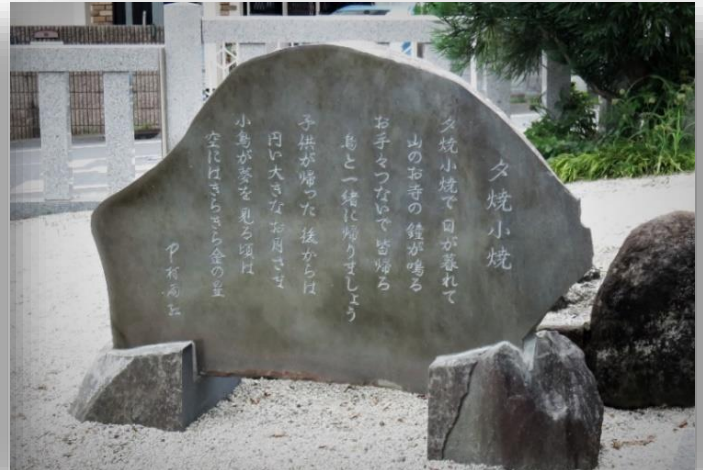 夕焼小焼
夕焼小焼で 日が暮れて
山のお寺の 鐘が鳴る
お手々つないで 皆帰ろ
烏と一緒に帰りましょう
子供が帰った 後からは
円い大きな お月さま
小鳥が夢を 見る頃は
空にはきらきら金の星
中村雨紅